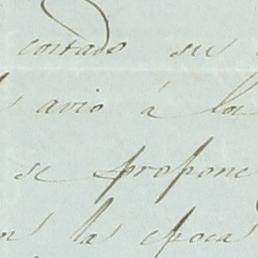 contado su
avio á la
se propone
las epoca